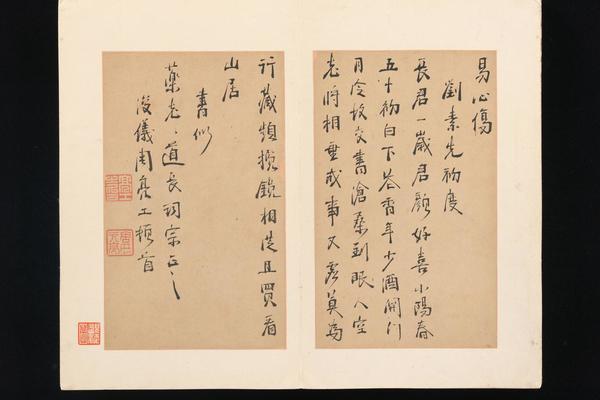 易心傷
劉素先初度
長君一歲君顏好喜小陽春
五十初白下香年少酒開門
月令故交書滄桑到眼人空
老將相垂成事又虛莫為
行藏頻攬鏡相從且買看
山居
書似
藥老道長詞宗正之
浚儀周亮工頓首